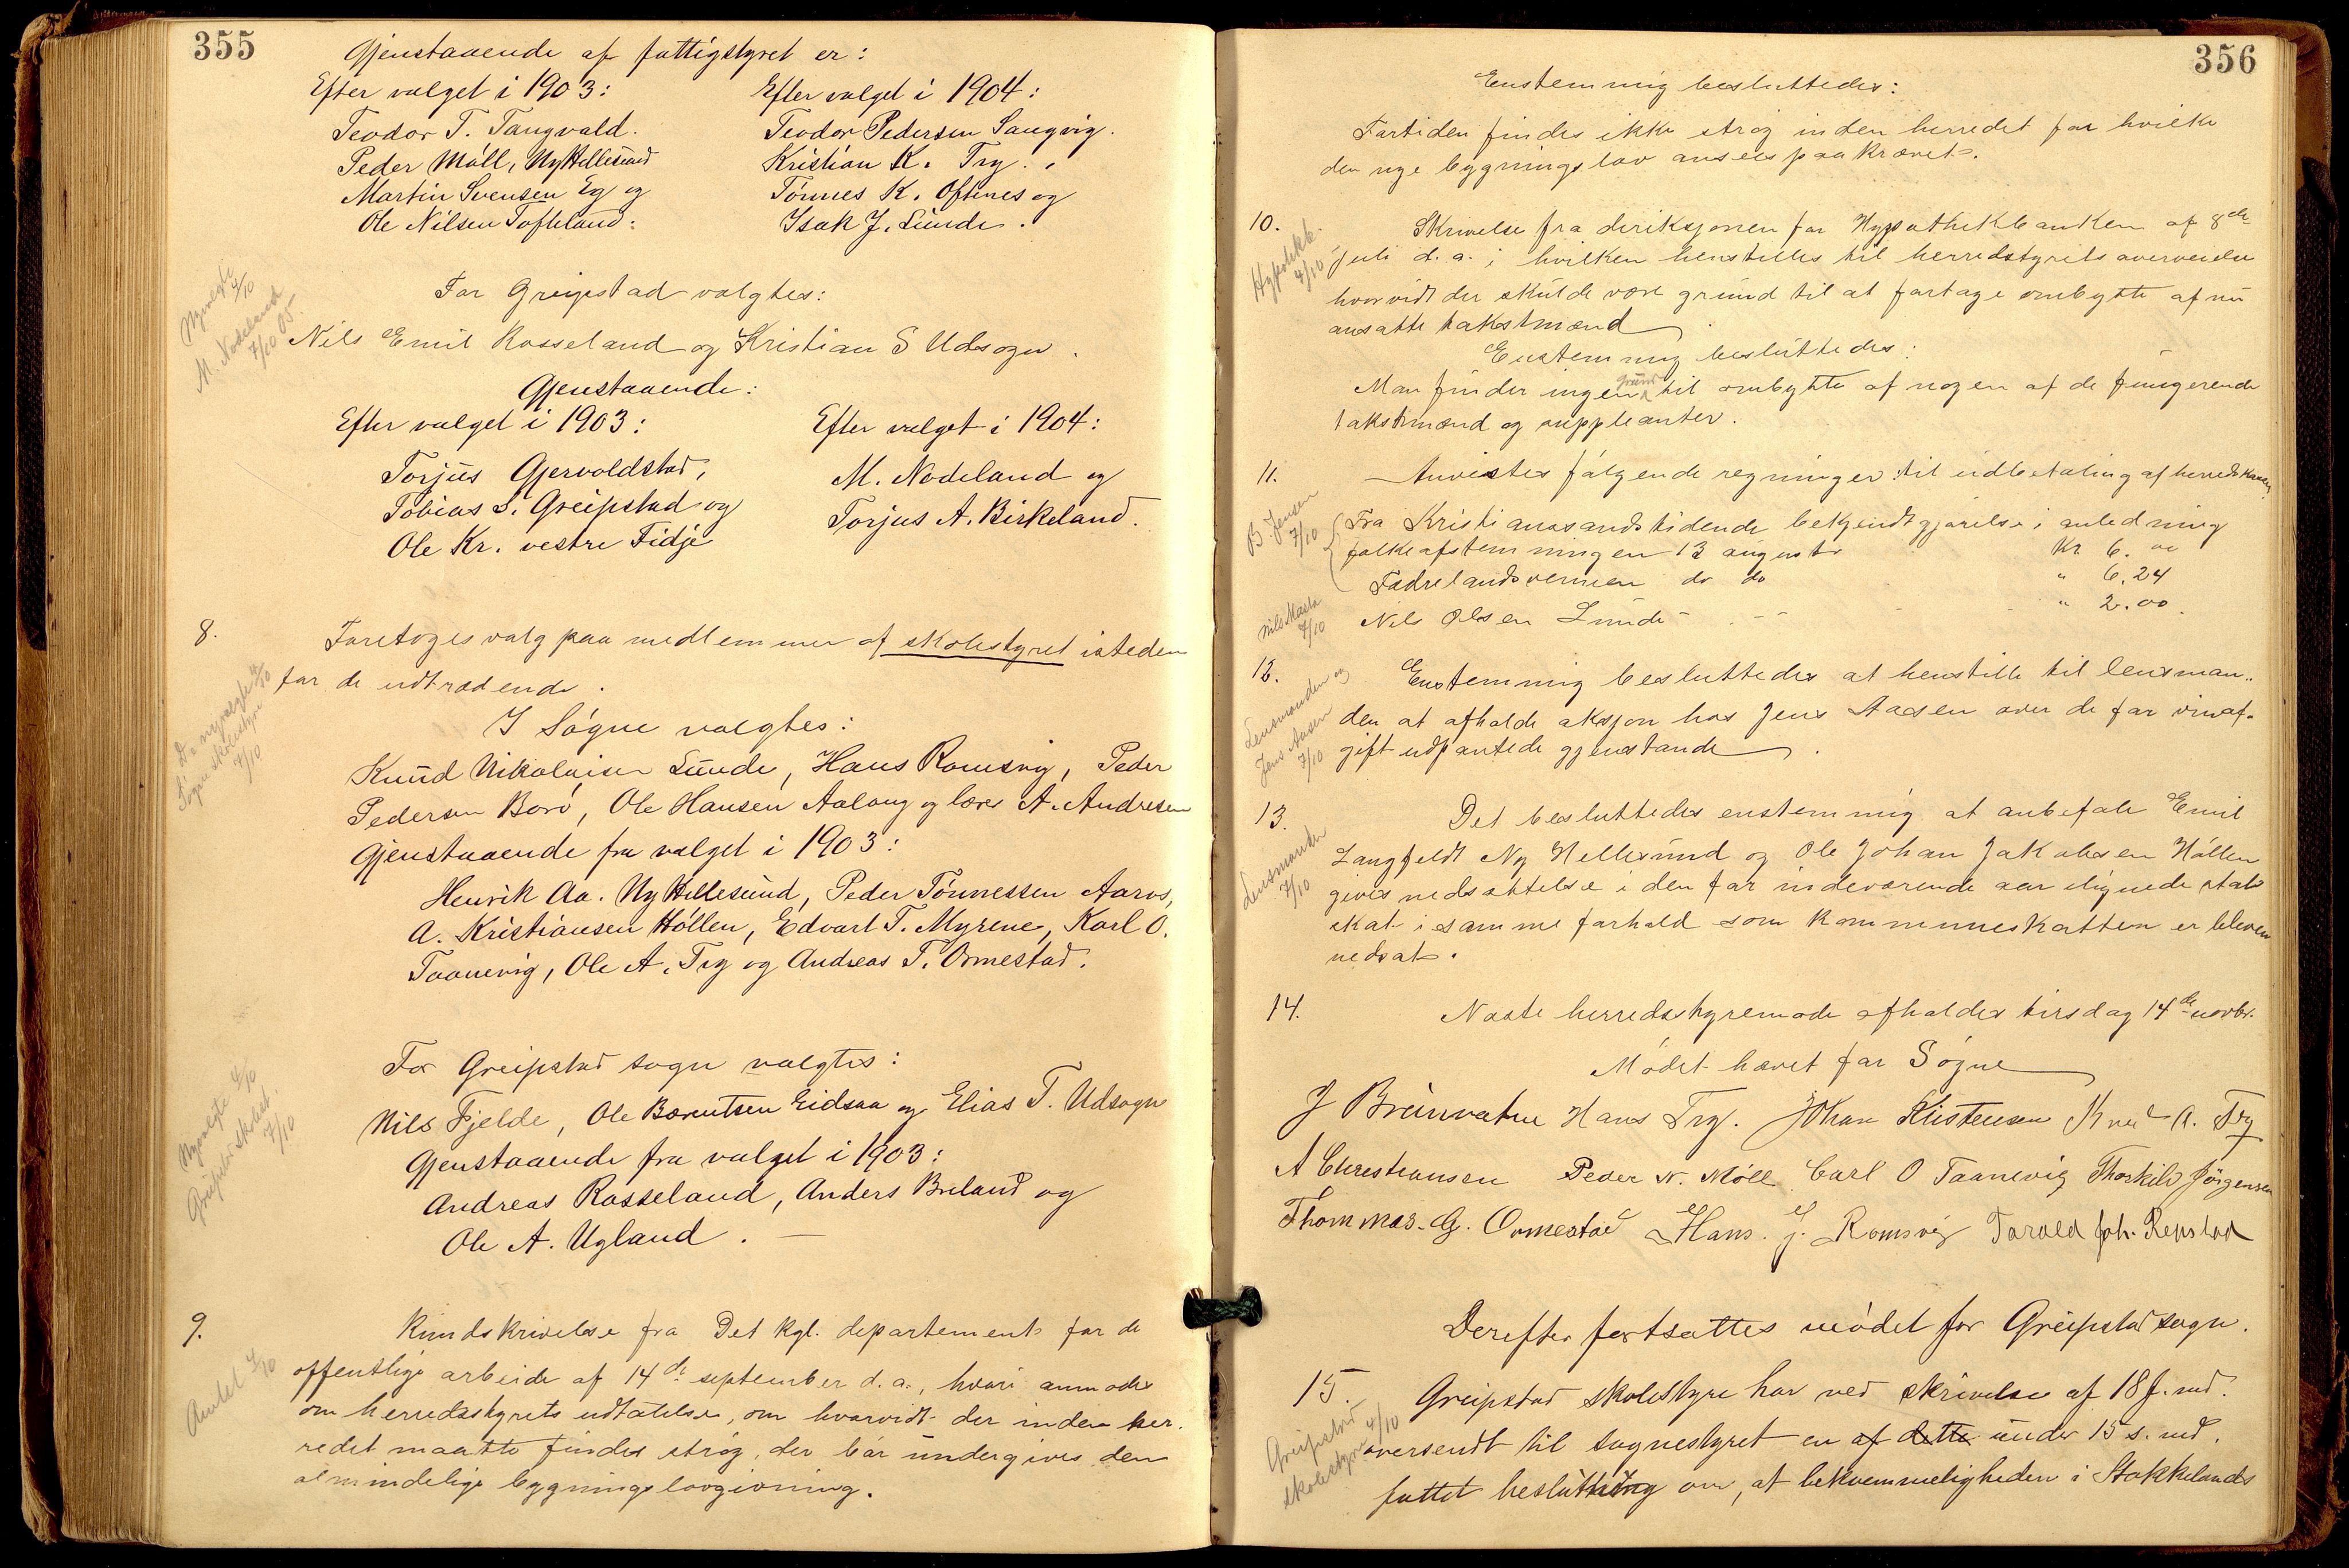 355
Gjenstaaende af fattigstyret er:
Efter valget i 1903:
Teodor T. Tangvald.
Peder Möll, Ny Hellesund
Martin Svensen Eg og
Ole Nilsen Tofteland:
Efter valget i 1904:
Teodor Pedersen Langvig.
Kristian K. Try.
Tönnes K. Oftenes og
Isak J. Lunde.
Nyvalgte 4/10
M. Nodeland
7/10 05.
For Greipstad valgtes:
Nils Emil Rosseland og Kristian S Udsogn.
Gjenstaaende:
Efter valget i 1903:
Torjus Gjervoldstad,
Tobias S. Greipstad og
Ole Kr. vestre Fidje
Efter valget i 1904:
M. Nodeland og
Torjus A. Birkeland.
8. Foretoges valg paa medlemmer af skolestyret isteden
for de udtrædende.
De nyvalgte 4/10
Søgne skolestyre
7/10
I Sögne valgtes:
Knud Nikolaisen Lunde, Hans Romsvig, Peder
Pedersen Borö, Ole Hansen Aalong og lærer A. Andresen
Gjenstaaende fra valget i 1903:
Henrik Aa. Ny Hellesund, Peder Tönnessen Aaros,
A. Kristiansen Höllen, Edvart T. Myrene, Karl O.
Taanevig, Ole A. Try og Andreas T. Ormestad.
Nyvalgte 4/10
Greipstad skolest.
7/10
For Greipstad sogn valgtes:
Nils Fjelde, Ole Berentsen Eidsaa og Elias T. Udsogn
Gjenstaaende fra valget i 1903:
Andreas Rosseland, Anders Breland og
Ole A. Ugland.
9. Rundskrivelse fra Det kgl. departement for de
Amtet 7/10
offentlige arbeide af 14de september d. a., hvori anmodes
om herredsstyrets udtalelse, om hvorvidt der inden her-
redet maatte findes strög, der bör undergives den
almindelige bygningslovgivning.
356
Enstemmig besluttedes:
Fortiden findes ikke strög inden herredet for hvilke
den nye bygningslov ansees paakrævet.
10. Skrivelse fra direksjonen for Hypothekbanken af 8de
Hypothekb.
4/10
juli d. a. i hvilken henstilles til herredstyrets overveielse
hvorvidt der skulde være grund til at fortage ombytte af nu
ansatte takstmænd.
Enstemmig besluttedes:
Man finder ingen grund til ombytte af nogen af de fungerende
takstmænd og suppleanter.
11. Anvistes fölgende regninger til udbetaling af herredskassen
B. Jensen
7/10
Fra Kristianssands tidende bekjendtgjörelse i anledning
folkeafstemningen 13 august Kr 6.00
Fædrelandsvennen do do " 6.24
Nils Olsen Lunde " 2.00.
7/10
12. Enstemmig besluttedes at henstille til lensman-
Lensmanden og
Jens Aasen
7/10
den at afholde aksjon hos Jens Aasen over de for vinaf-
gift udpantede gjenstande.
13. Det besluttedes enstemmig at anbefale Emil
Lensmanden
7/10
Langfeldt Ny Hellesund og Ole Johan Jakobsen Höllen
gives nedsættelse i den for indeværende aar lignede stats
skat i samme forhold som kommuneskatten er bleven
nedsat.
14. Næste herredsstyremöde afholdes tirsdag 14de novbr.
Mödet hævet for Sögne
J Brünvatne Hans Try. Johan Kristensen Knud A. Try
A Christiansen Peder N. Möll Carl O Taanevig Thorkild Jörgensen
Thommas. G. Ormestad Hans. J. Romsvig Tarald Joh. Repstad
Derefter fortsattes mödet for Greipstad sogn.
15. Greipstad skolestyre har ved skrivelse af 18 f. md.
Greipstad
skolestyre 4/10
oversendt til sognestyret en af dette under 15 s. md.
fattet beslutning om, at bekvemmeligheden i Stokkelands